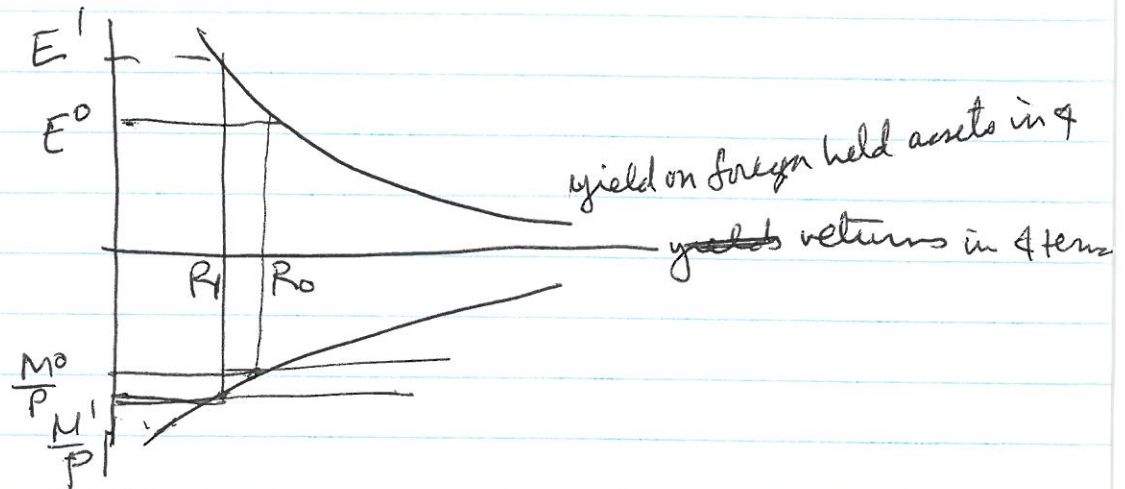 E¹
E⁰
yield on foreign held assets in
yields returns in
R₁ R₀
M⁰
P
M¹
P